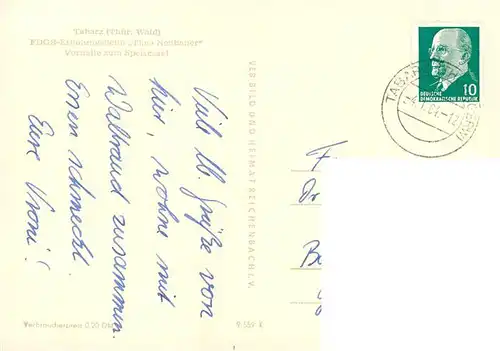 Tabarz (Thür. Wald)
FDGB-Erholungsheim „Theo Neubauer“
Vorhalle zum Speisesaal
Viele lb. Grüße von
hier, wohne mit
Waltraud zusammen.
Essen schmeckt.
Eure Vroni!
VEB BILD UND HEIMAT REICHENBACH I. V.
10
DEUTSCHE
DEMOKRATISCHE REPUBLIK
TABARZ
F
Dr
B
Verbraucherpreis 0,20 DM